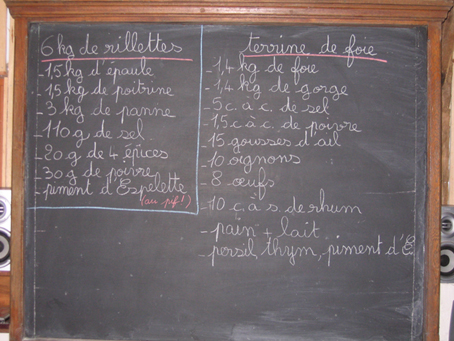 6 kg de rillettes
- 1,5 kg d'épaule
- 1,5 kg de poitrine
- 3 kg de panne
- 110 g de sel
- 20 g de 4 épices
- 30 g de poivre
- piment d'Espelette
(au pif!)
terrine de foie
- 1,4 kg de foie
- 1,4 kg de gorge
- 5 c. à c. de sel
- 1,5 c à c. de poivre
- 15 gousses d'ail
- 10 oignons
- 8 œufs
- 10 c. à s. de rhum
- pain + lait
- persil, thym, piment d'E